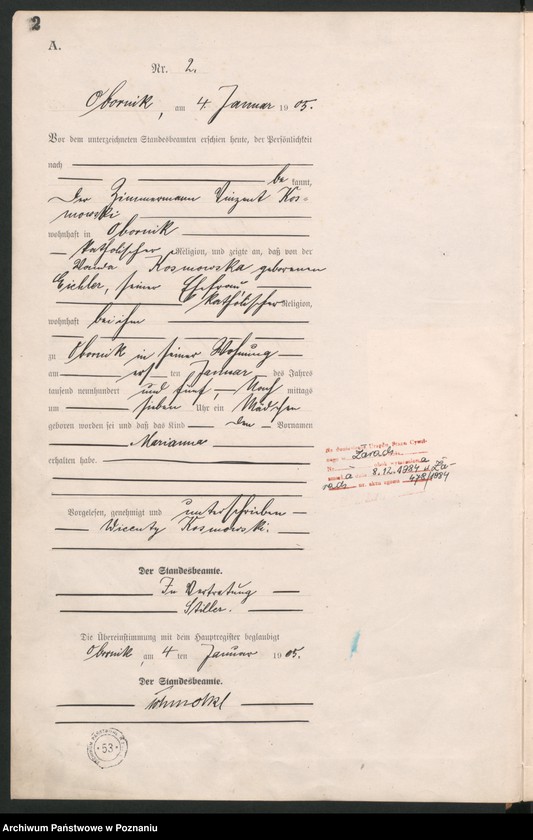 2
A.
Nr. 2.
Obornik, am 4 Januar 1905.
Vor dem unterzeichneten Standesbeamten erschien heute, der Persönlichkeit
nach
be kannt,
Der Zimmermann Vinzent Kos=
mowski
wohnhaft in Obornik
katholischer Religion, und zeigte an, daß von der
Wanda Kosmowska geborenen
Eichler, seiner Ehefrau
katholischer Religion,
wohnhaft bei ihm
zu Obornik in seiner Wohnung
am ers ten Januar des Jahres
tausend neunhundert und fünf, Nach mittags
um sieben Uhr ein Mädchen
geboren worden sei und daß das Kind den Vornamen
Marianna
erhalten habe.
Vorgelesen, genehmigt und unterschrieben
Wicenty Kosmowski.
Der Standesbeamte.
In Vertretung
Stiller.
Die Übereinstimmung mit dem Hauptregister beglaubigt
Obornik, am 4 ten Januar 1905.
Der Standesbeamte.
Urzędu Stanu Cywil-
nego w Żarach
8.12.1984 w Ża-
rach nr. aktu zgonu 478/1984
53
Archiwum Państwowe w Poznaniu